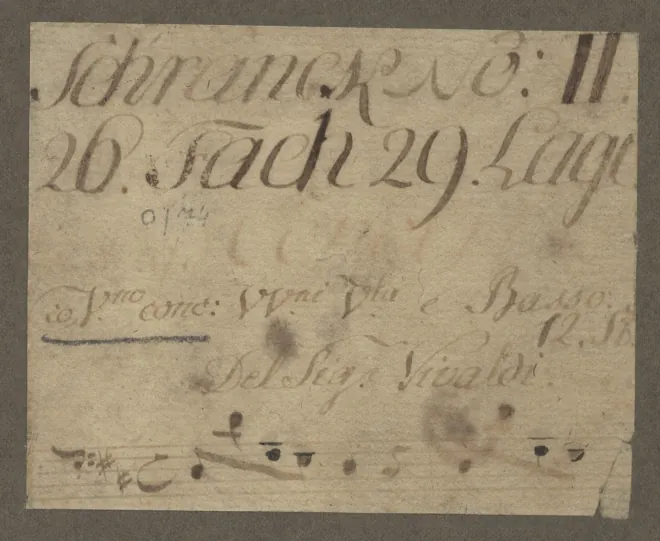 Schranck No: II.
26. Fach 29. Lage
Co V.no conc: VV.ni V.la e Basso.
12. St.
Del Sig.r Vivaldi.